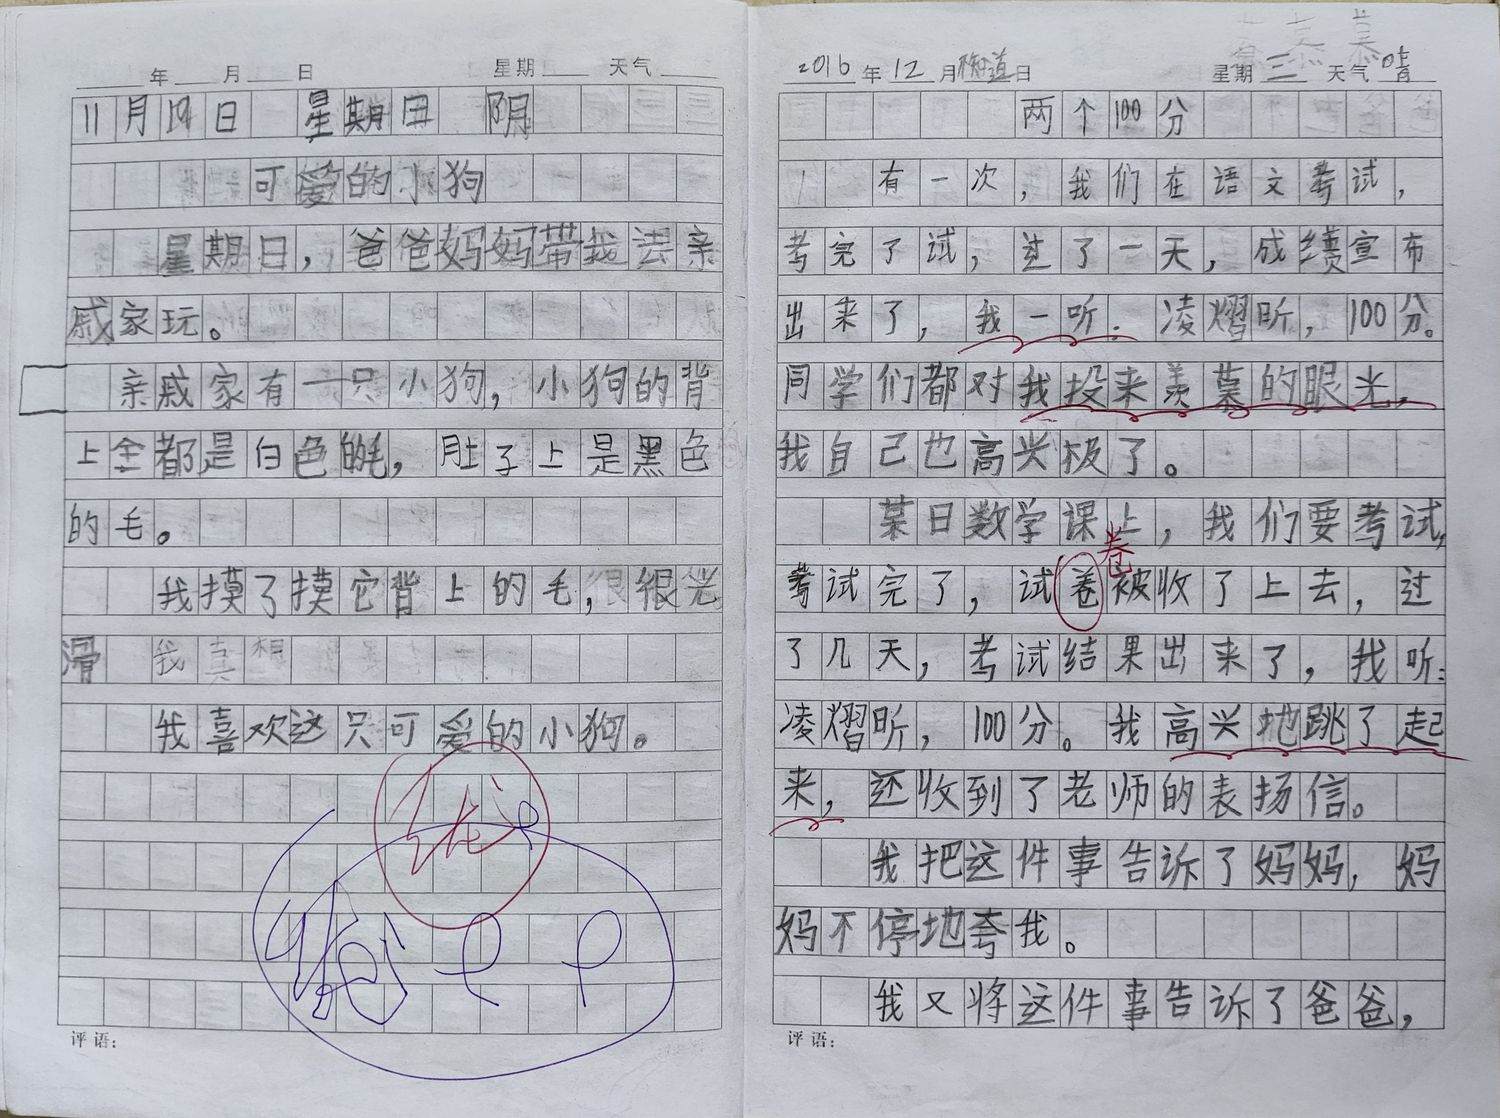 年 月 日 星期 天气
11月19日 星期日 阴
可爱的小狗
星期日，爸爸妈妈带我去亲
戚家玩。
亲戚家有一只小狗，小狗的背
上全都是白色的毛，肚子上是黑色
的毛。
我摸了摸它背上的毛，很很光
滑 我真想
我喜欢这只可爱的小狗。
优
评语：
2016年12月 日 星期三 天气 晴
两个100分
有一次，我们在语文考试，
考完了试，过了一天，成绩宣布
出来了，我一听：凌熠昕，100分。
同学们都对我投来羡慕的眼光，
我自己也高兴极了。
某日数学课上，我们要考试，
卷
考试完了，试卷被收了上去，过
了几天，考试结果出来了，我听：
凌熠昕，100分。我高兴地跳了起
来，还收到了老师的表扬信。
我把这件事告诉了妈妈，妈
妈不停地夸我。
我又将这件事告诉了爸爸，
评语：